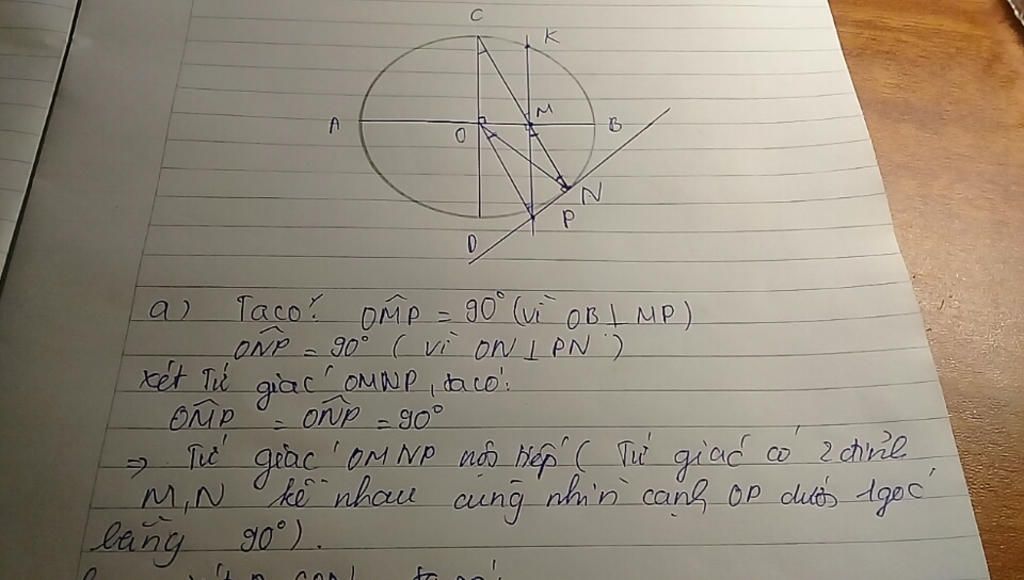 C
K
A
O
M
B
N
P
D
a) Ta có: OM̂P = 90° (vì OB ⊥ MP)
ON̂P = 90° (vì ON ⊥ PN)
xét Tứ giác OMNP, ta có:
OM̂P = ON̂P = 90°
⇒ Tứ giác OMNP nội tiếp (Tứ giác có 2 đỉnh
M, N kề nhau cùng nhìn cạnh OP dưới 1 góc
bằng 90°).